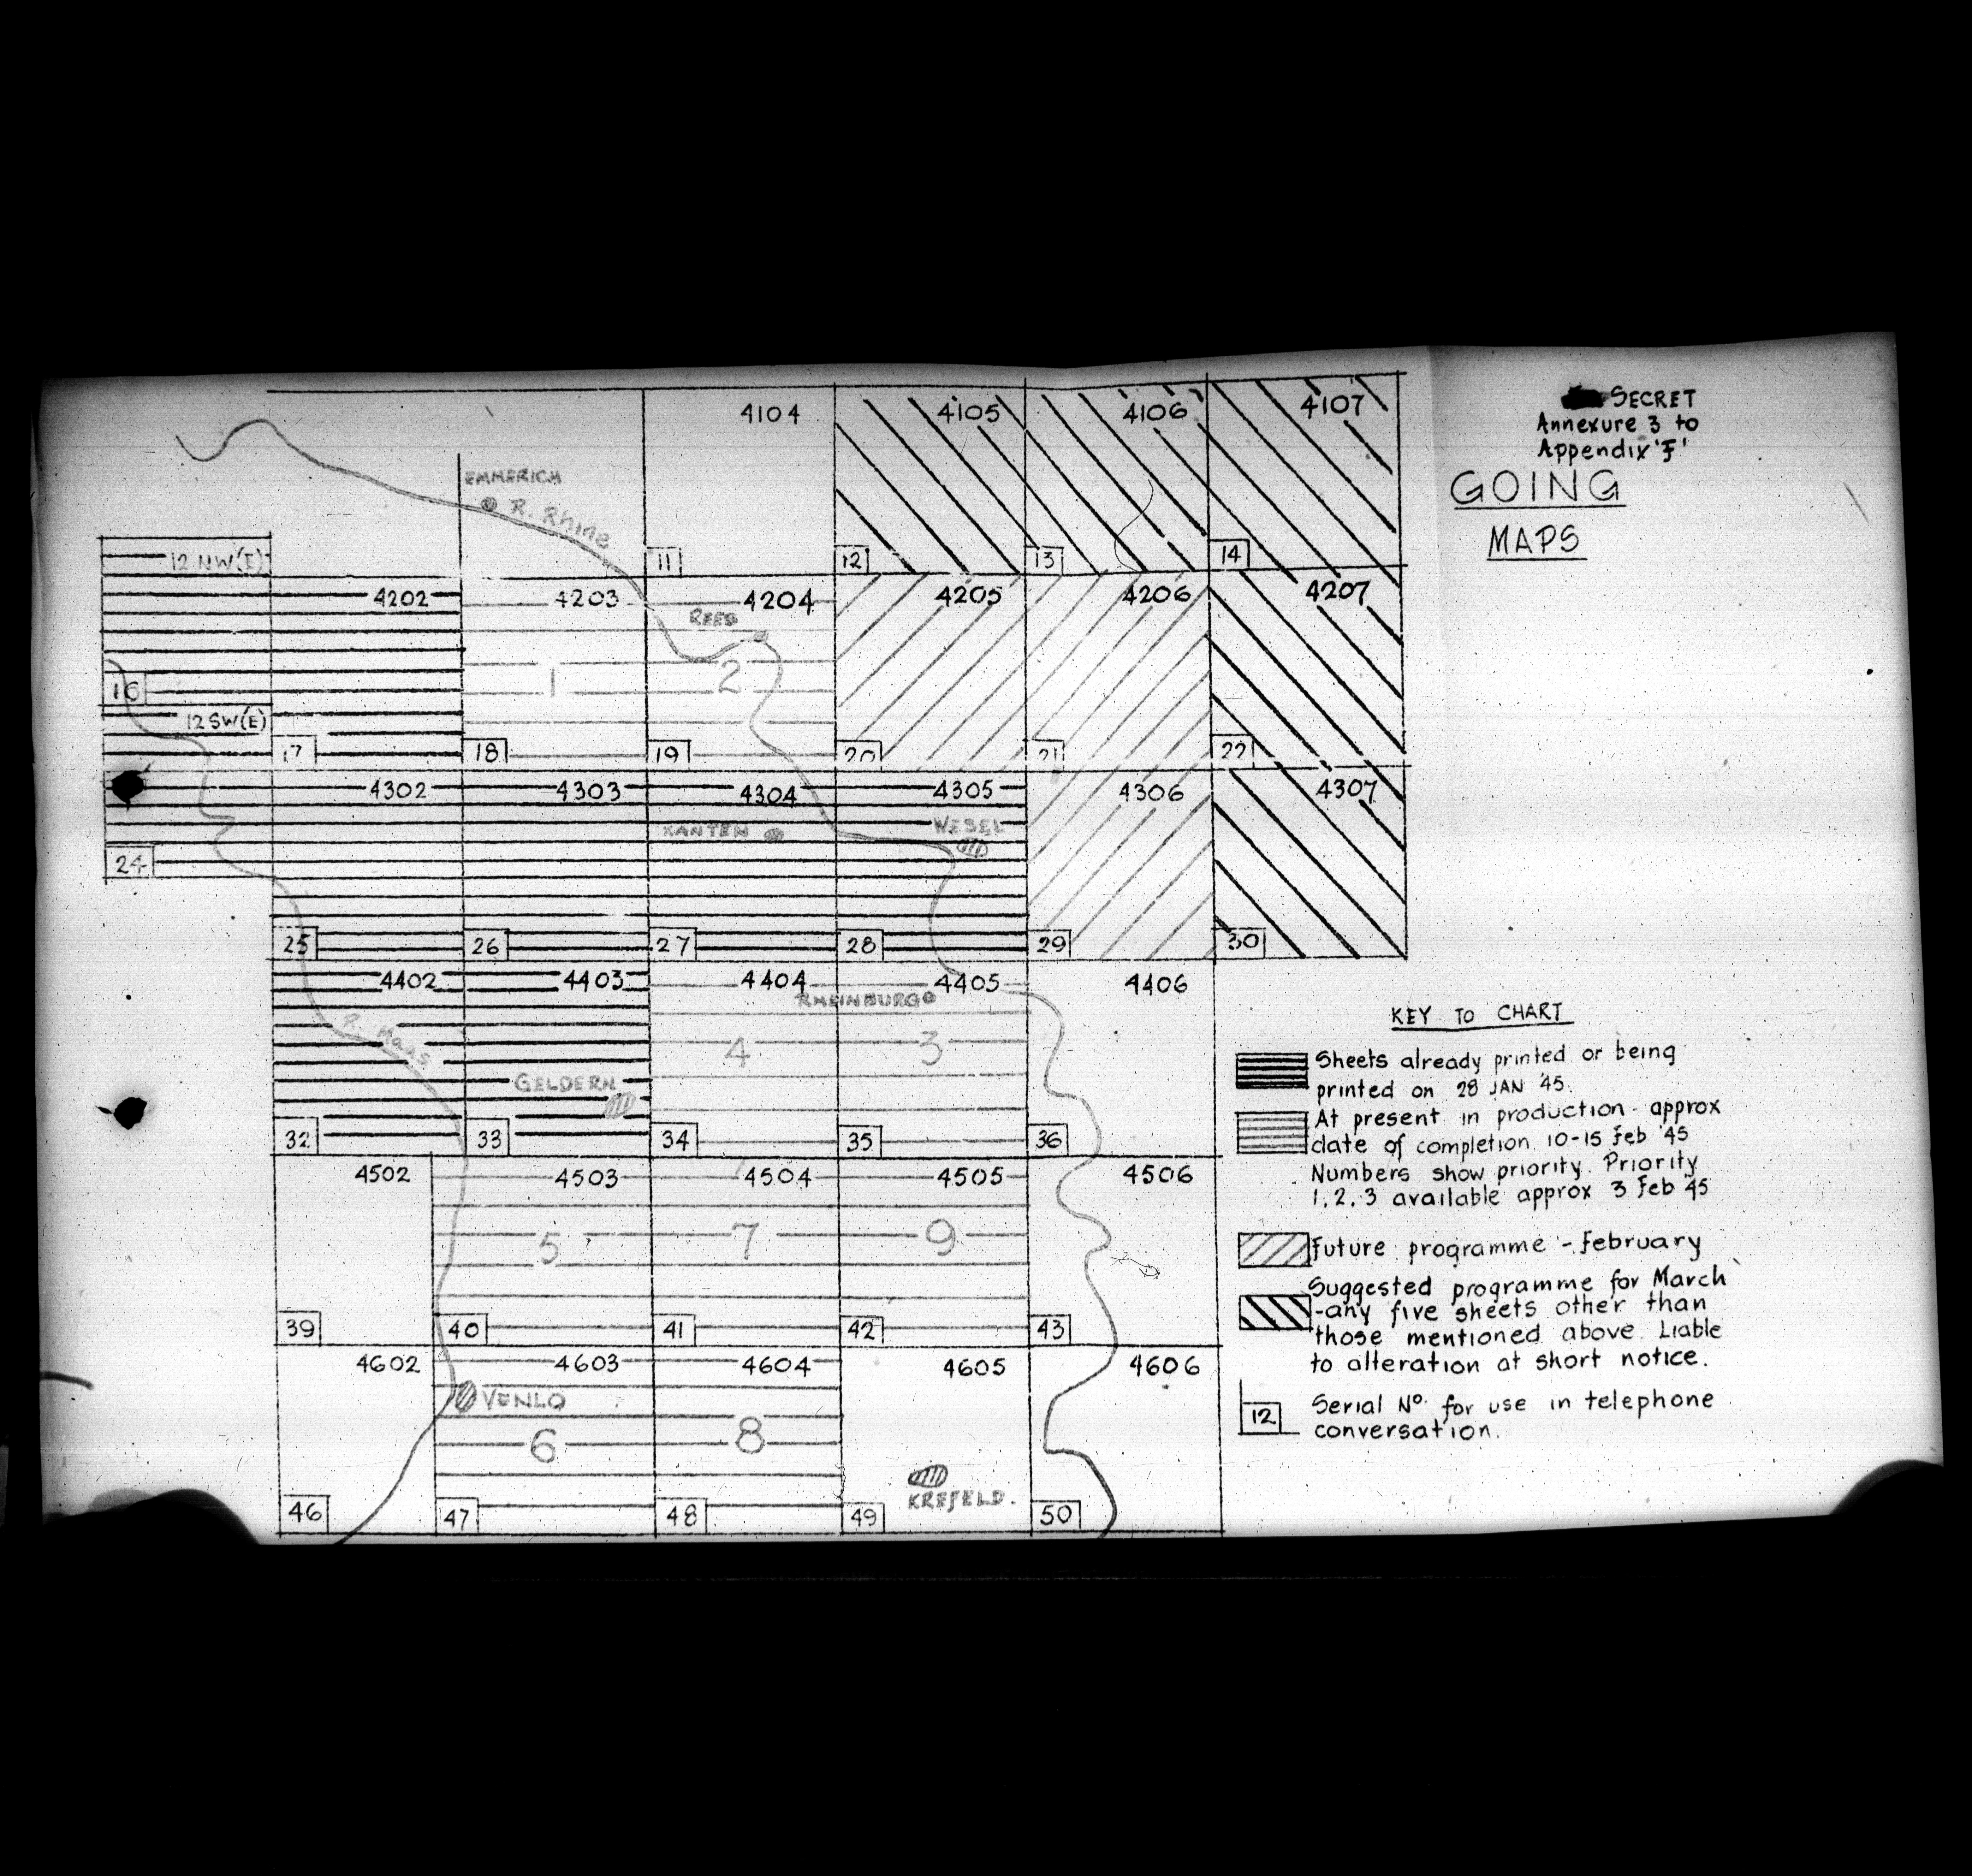 SECRET
Annexure 3 to
Appendix 'F'
GOING
MAPS
4104 4105 4106 4107
EMMERICH
R. Rhine
11 12 13 14
12 NW(E)
4202 4203 4204 4205 4206 4207
REES
1 2
16
12 SW(E)
17 18 19 20 21 22
4302 4303 4304 4305 4306 4307
XANTEN WESEL
24
25 26 27 28 29 30
4402 4403 4404 4405 4406
RHEINBURG
R. Maas
4 3
GELDERN
32 33 34 35 36
4502 4503 4504 4505 4506
5 7 9
39 40 41 42 43
4602 4603 4604 4605 4606
VENLO
6 8
KREFELD.
46 47 48 49 50
KEY TO CHART
Sheets already printed or being
printed on 28 JAN '45.
At present in production - approx
date of completion 10-15 Feb '45
Numbers show priority. Priority
1, 2, 3 available approx 3 Feb '45
Future programme - February
Suggested programme for March
-any five sheets other than
those mentioned above. Liable
to alteration at short notice.
12
Serial No. for use in telephone
conversation.